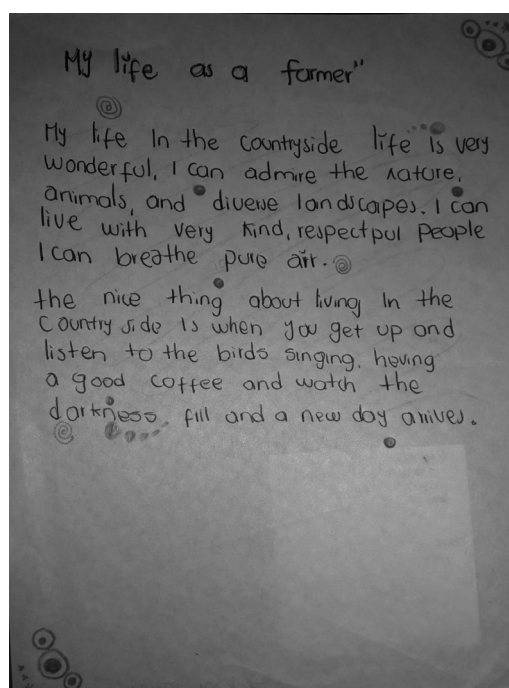 My life as a farmer"
My life In the countryside life is very
wonderful, I can admire the nature,
animals, and diverse landscapes. I can
live with very kind, respectpul people
I can breathe pure air.
the nice thing about living In the
Country side Is when you get up and
listen to the birds singing. having
a good coffee and watch the
darkness fill and a new day arrives.